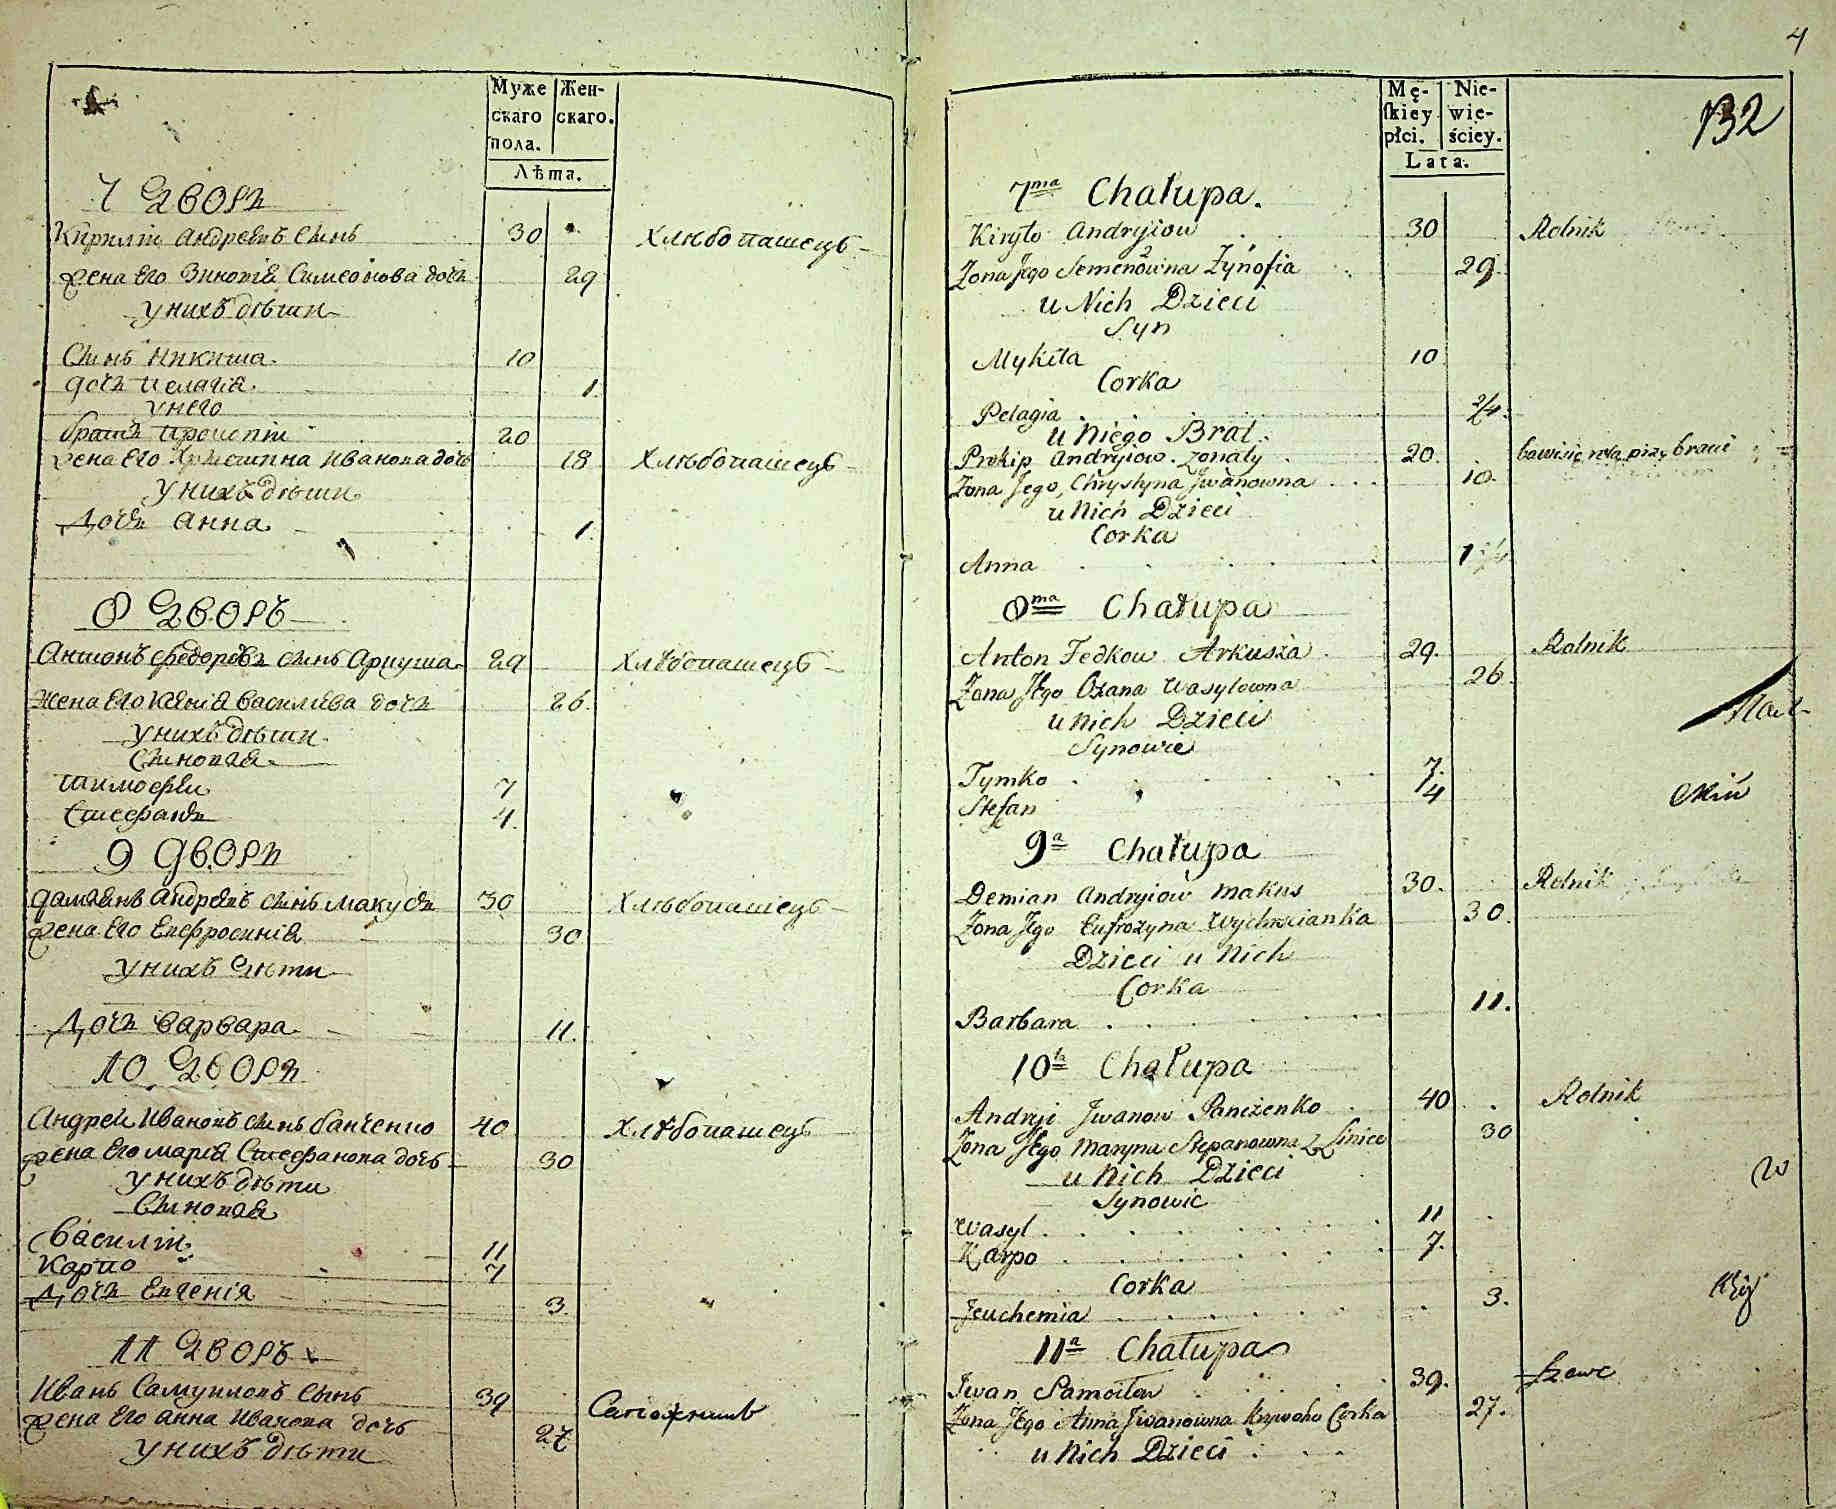 Муже
скаго
пола.
Жен-
скаго.
Лѣта.
7 Дворъ
Кирилъ Андреевъ Сынъ 30 Хлѣбопашецъ
Жена Его Зиновія Симеонова дочь 29
у нихъ дѣти
Сынъ Никита 10
дочь Пелагія 1
у него
братъ Прокопій 20
Жена Его Христина Иванова дочь 18 Хлѣбопашецъ
у нихъ дѣти
Дочь Анна 1
8 Дворъ
Антонъ Федоровъ Сынъ Аркуша 29 Хлѣбопашецъ
Жена Его Ксенія Василіева дочь 26
у нихъ дѣти
Сыновья
Тимофей 7
Стефанъ 4
9 Дворъ
Даміянъ Андреевъ Сынъ Макусъ 30 Хлѣбопашецъ
Жена Его Евфросинія 30
у нихъ дѣти
Дочь Варвара 11
10 Дворъ
Андрей Ивановъ Сынъ Панченко 40 Хлѣбопашецъ
Жена Его Марія Стефанова дочь 30
у нихъ дѣти
Сыновья
Василій 11
Карпо 7
Дочь Евгенія 3
11 Дворъ
Иванъ Самуиловъ Сынъ 39 Сапожникъ
Жена Его Анна Иванова дочь 27
у нихъ дѣти
4
132
Mę-
skiey
płci.
Nie-
wie-
ściey.
Lata.
7ma Chałupa.
Kiryło Andryiow 30 Rolnik
Zona Jego Semenowna Zynofia 29
u Nich Dzieci
Syn
Mykita 10
Corka
Pelagia 2/4
u Niego Brat
Prokip Andryiow zonaty 20 bawi się rolą przy braci
Zona Jego, Chrystyna Jwanowna 18
u Nich Dzieci
Corka
Anna 1
8ma Chałupa
Anton Fedkow Arkusza 29 Rolnik
Zona Jego Oxana Wasylowna 26
u Nich Dzieci
Synowie
Tymko 7
Stefan 4
9a Chałupa
Demian Andryiow Makus 30 Rolnik
Zona Jego Eufrozyna Wychrzcianka 30
Dzieci u Nich
Corka
Barbara 11
10ta Chałupa
Andryi Jwanow Panczenko 40 Rolnik
Zona Jego Maryna Stepanowna z Liniec 30
u Nich Dzieci
Synowie
Wasyl 11
Karpo 7
Corka
Jeuchemia 3
11a Chałupa
Jwan Samoiłow 39 Szewc
Zona Jego Anna Jwanowna Krywoho Corka 27
u Nich Dzieci